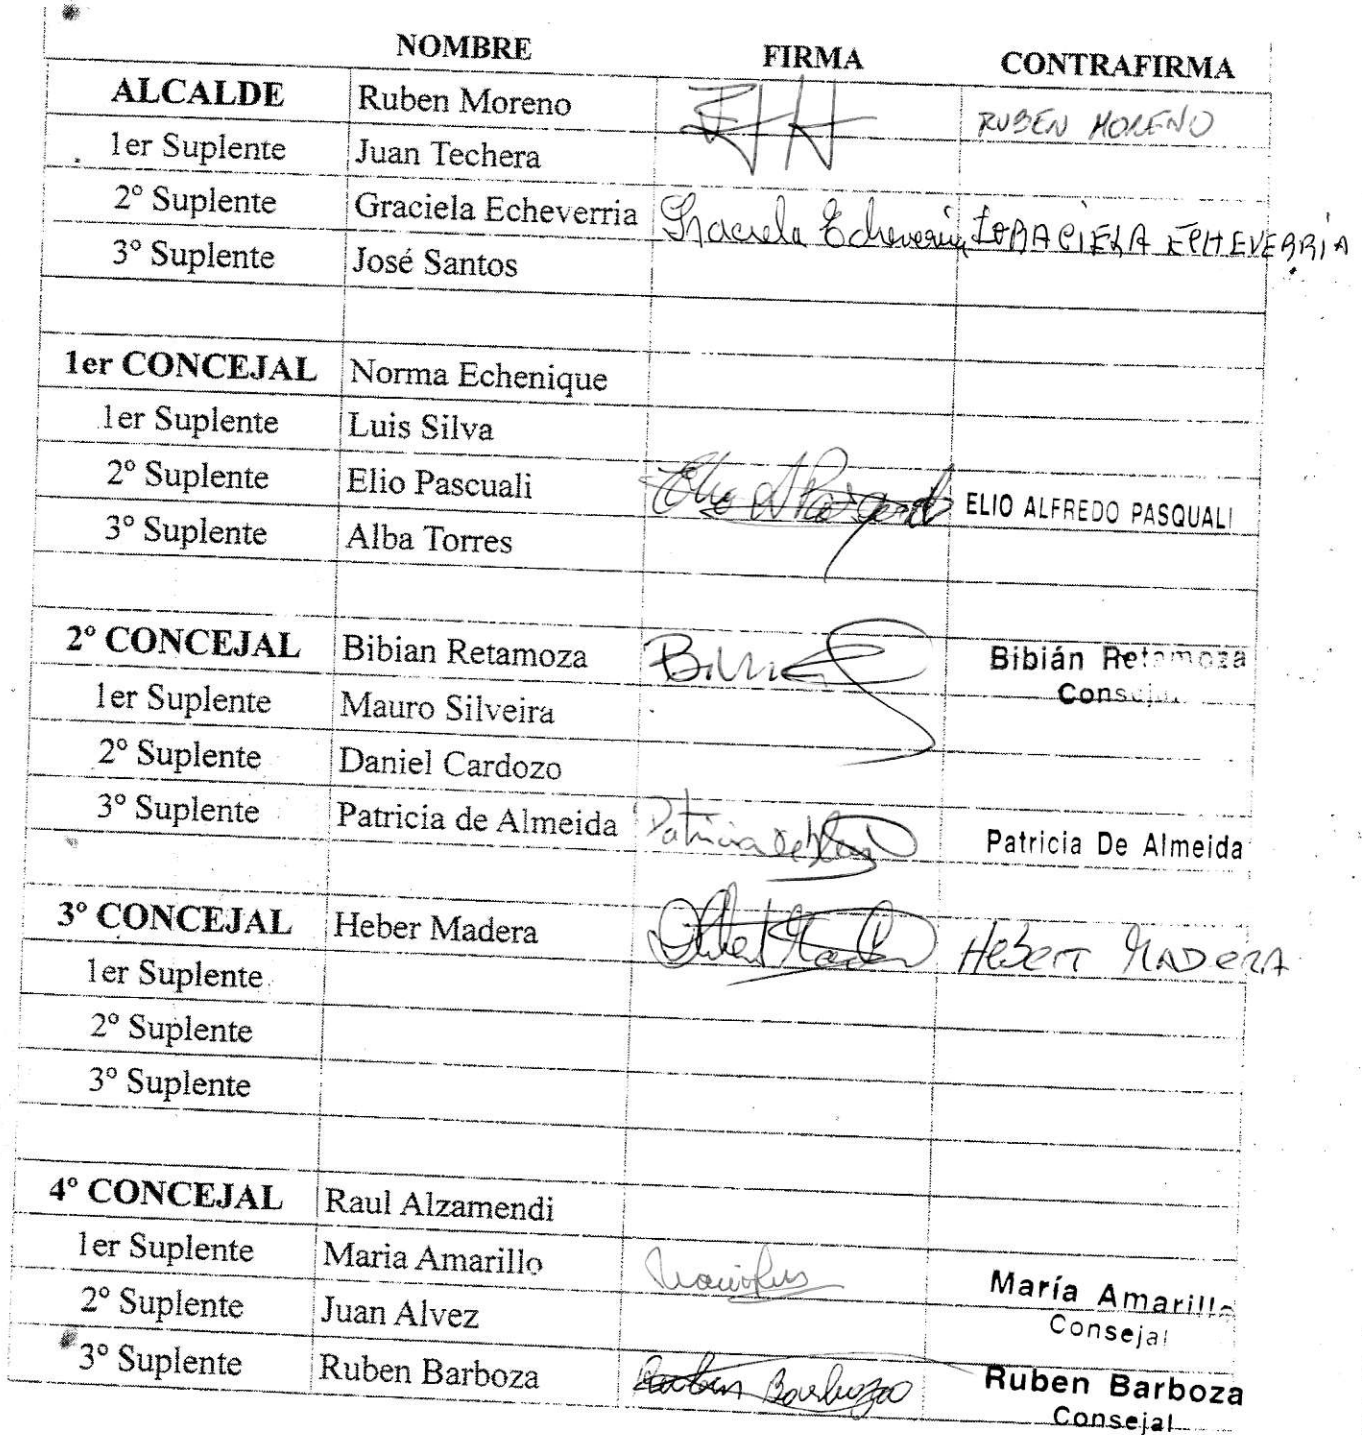 NOMBRE FIRMA CONTRAFIRMA
ALCALDE Ruben Moreno RUBEN MORENO
1er Suplente Juan Techera
2º Suplente Graciela Echeverria Graciela Echeverria GRACIELA ECHEVERRIA
3º Suplente José Santos
1er CONCEJAL Norma Echenique
1er Suplente Luis Silva
2º Suplente Elio Pascuali Elio A Pasquali ELIO ALFREDO PASQUALI
3º Suplente Alba Torres
2º CONCEJAL Bibian Retamoza Bibián Retamoza
Consejal
1er Suplente Mauro Silveira
2º Suplente Daniel Cardozo
3º Suplente Patricia de Almeida Patricia De Almeida
3º CONCEJAL Heber Madera HEBERT MADERA
1er Suplente
2º Suplente
3º Suplente
4º CONCEJAL Raul Alzamendi
1er Suplente Maria Amarillo María Amarillo
Consejal
2º Suplente Juan Alvez
3º Suplente Ruben Barboza Ruben Barboza Ruben Barboza
Consejal